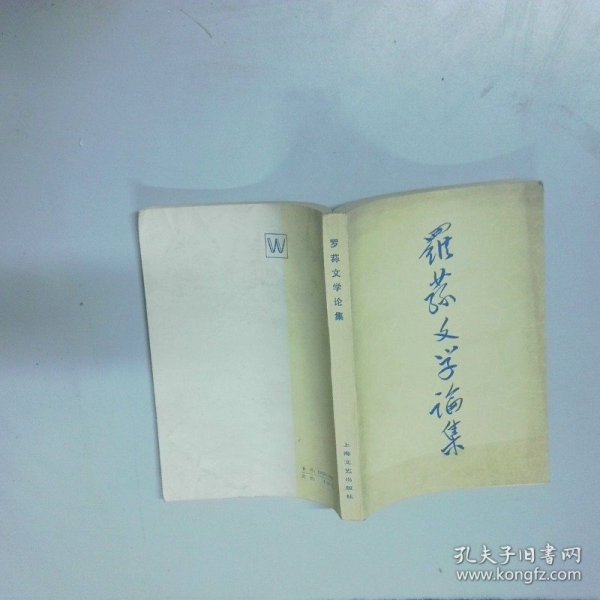 羅蓀文学論集
罗荪文学论集
上海文艺出版社
W
书号
定价
孔夫子旧书网
www.kongfz.com